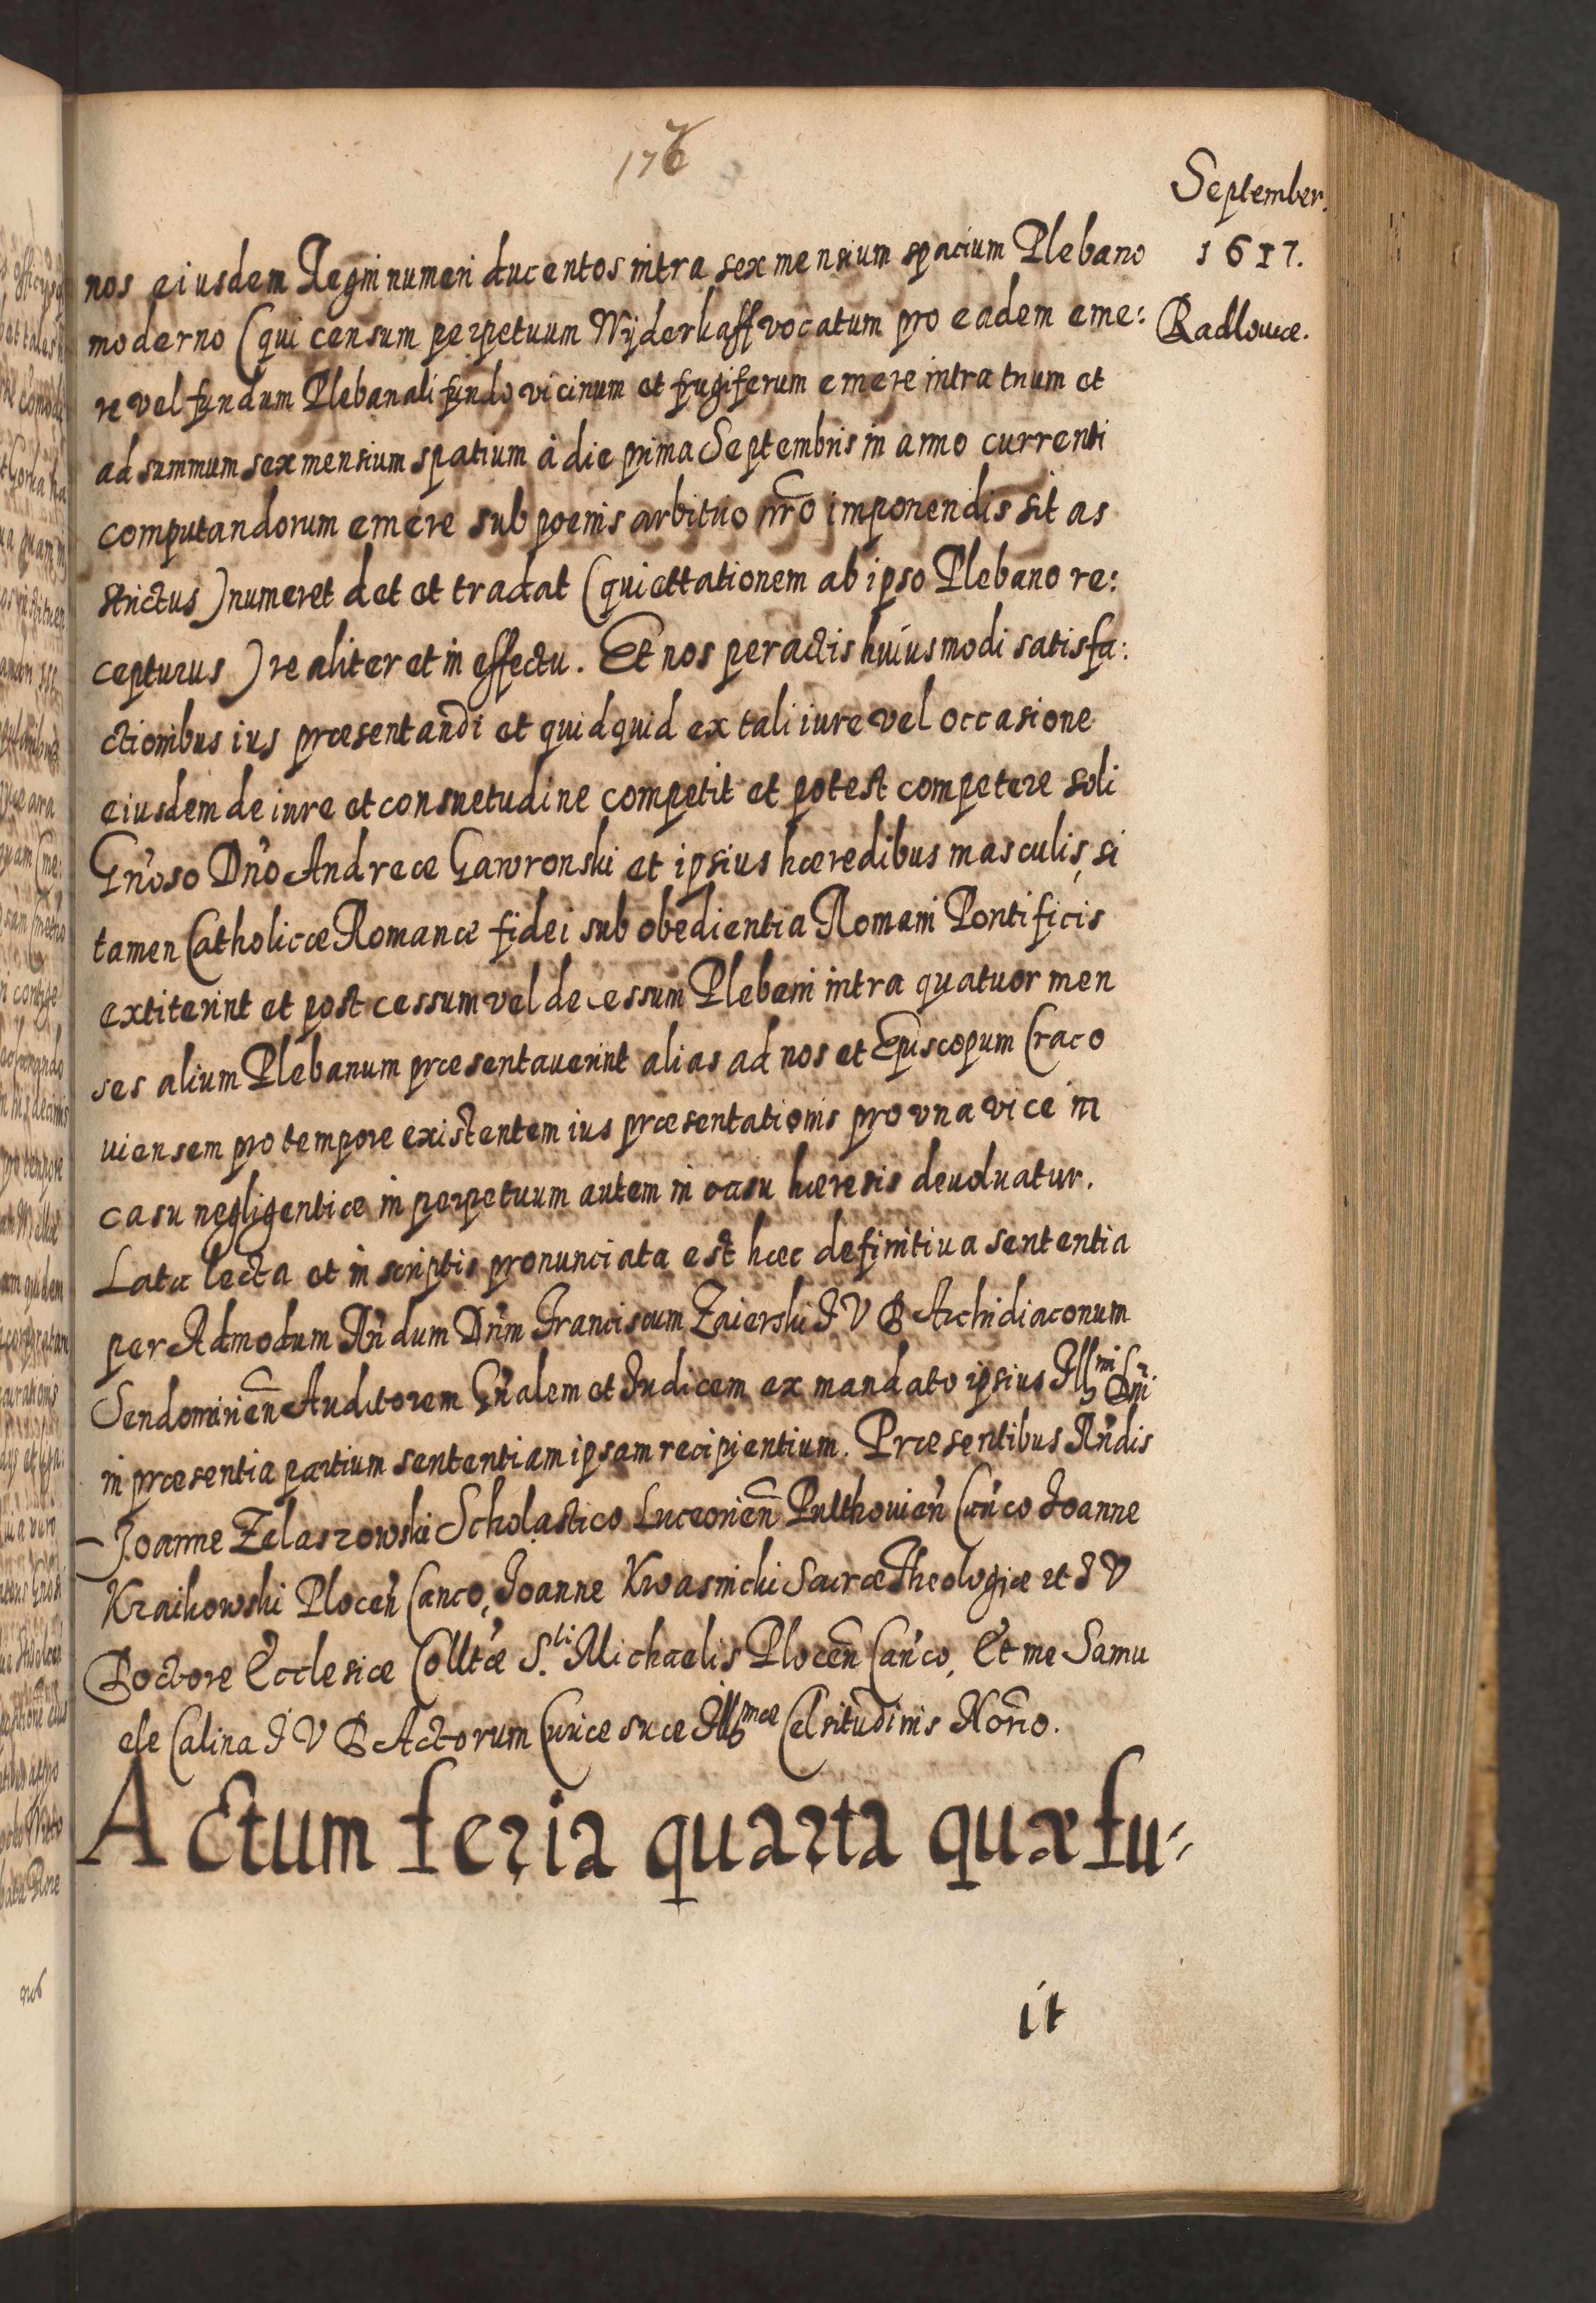 176
September.
1617.
Radlouice.
nos eiusdem Regni numeri ducentos intra sex mensium spacium Plebano
moderno (qui censum perpetuum Wÿderkaff vocatum pro eadem eme:
re vel fundum Plebanali fundo vicinum et frugiferum emere intra trium et
ad summum sex mensium spatium à die prima Septembris in anno currenti
computandorum emere sub poenis arbitrio nr̃o imponendis sit as
strictus) numeret det et tradat (quiettationem ab ipso Plebano re:
cepturus) realiter et in effectu. Et nos peractis huiusmodi satisfa:
ctionibus ius præsentandi et quidquid ex tali iure vel occasione
eiusdem de iure et consuetudine competit et potest competere soli
Gn̄oso Dn̄o Andreæ Gawronski et ipsius hæredibus masculis, si
tamen Catholicæ Romanæ fidei sub obedientia Romani Pontificis
extiterint et post cessum vel decessum Plebani intra quatuor men
ses alium Plebanum præsentauerint alias ad nos et Episcopum Craco
uiensem pro tempore existentem ius præsentationis pro vna vice in
casu negligentiæ in perpetuum autem in casu hæresis deuoluatur.
Lata lecta et in scriptis pronunciata est hæc definitiua sententia
per Admodum Rn̄dum Dn̄m Franciscum Zaierski I V D Archidiaconum
Sendomirien̄ Auditorem Gn̄alem et Iudicem ex mandato ipsius Illmi Dn̄i
in præsentia partium sententiam ipsam recipientium. Præsentibus Rn̄dis
Joanne Zelaszowski Scholastico Luceorien̄ Pulthouien̄ Can̄co Joanne
Kraikowski Plocen̄ Canco, Joanne Kwasnicki Sacræ Theologiæ et I V
Doctore Ecclesiæ Colltæ S.ti Michaelis Plocen̄ Can̄co, Et me Samu
ele Calina I V D Actorum Curiæ suæ Illmæ Celsitudinis Nor̃io.
Actum feria quarta quæ fu-
it